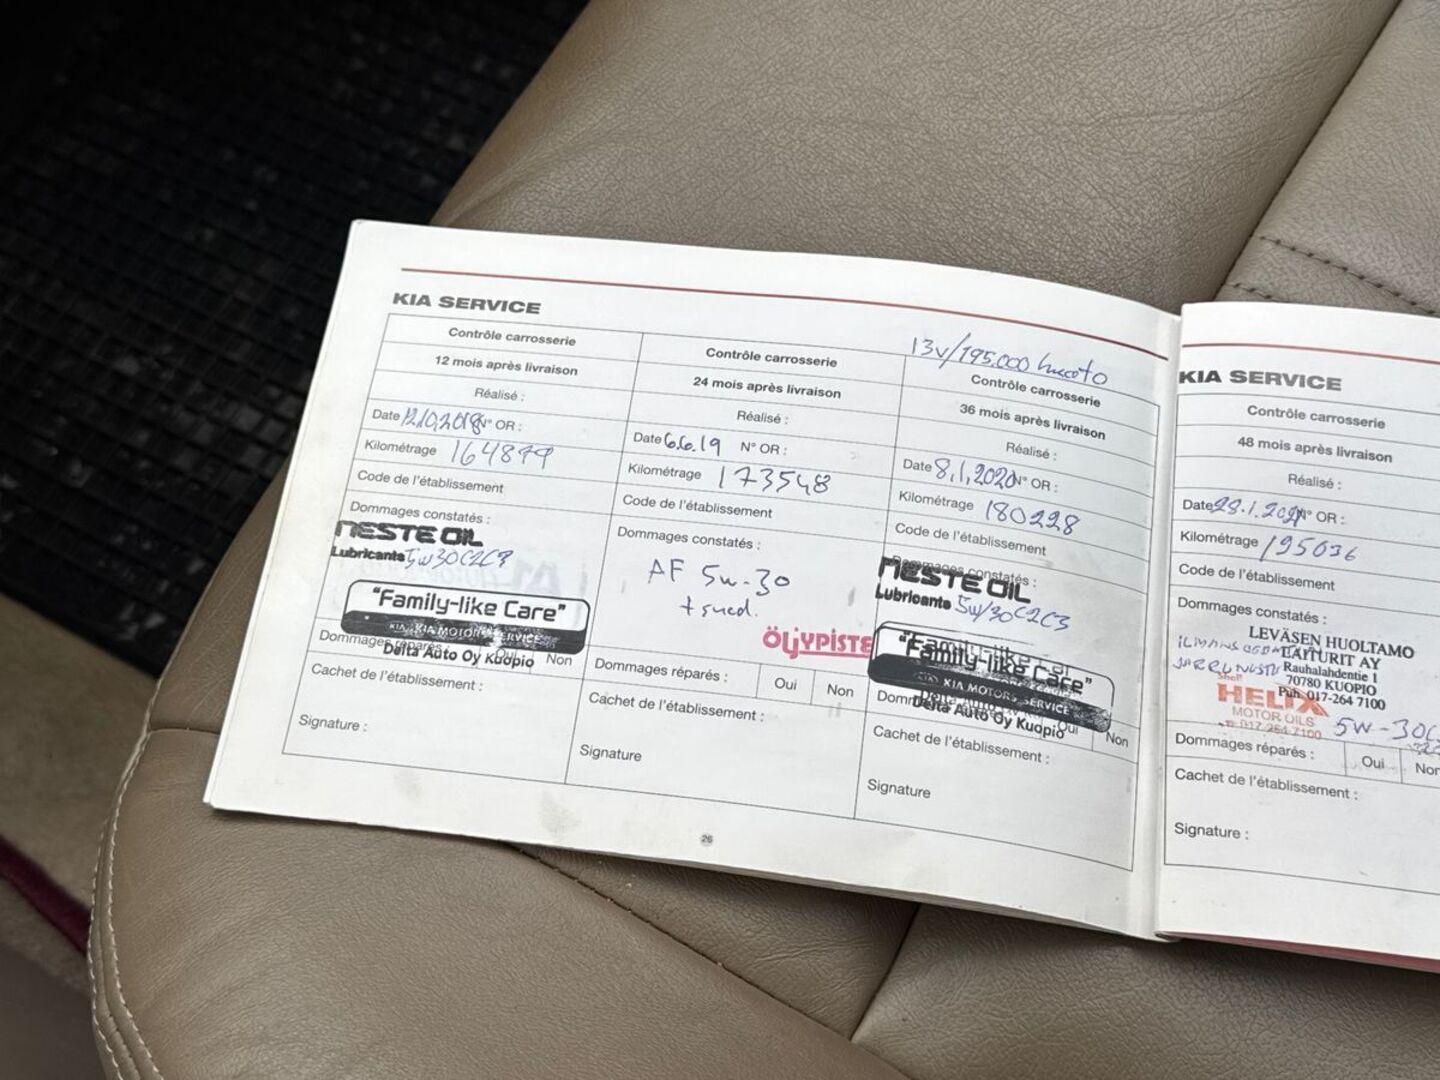 KIA SERVICE
Contrôle carrosserie
12 mois après livraison
Réalisé :
Date 12.10.2018 N° OR :
Kilométrage 164879
Code de l'établissement
Dommages constatés :
NESTE OIL
Lubricants 5w30C2C3
"Family-like Care"
KIA MOTORS SERVICE
Delta Auto Oy Kuopio
Dommages réparés : Oui Non
Cachet de l'établissement :
Signature :
Contrôle carrosserie
24 mois après livraison
Réalisé :
Date 6.6.19 N° OR :
Kilométrage 173548
Code de l'établissement
Dommages constatés :
AF 5w-30
+ sued.
ÖLJYPISTE
Dommages réparés : Oui Non
Cachet de l'établissement :
Signature
13v/195.000 huolto
Contrôle carrosserie
36 mois après livraison
Réalisé :
Date 8.1.2020 N° OR :
Kilométrage 180228
Code de l'établissement
Dommages constatés :
NESTE OIL
Lubricants 5w/30C2C3
"Family-like Care"
KIA MOTORS SERVICE
Delta Auto Oy Kuopio
Oui Non
Cachet de l'établissement :
Signature
26
KIA SERVICE
Contrôle carrosserie
48 mois après livraison
Réalisé :
Date 28.1.2021 N° OR :
Kilométrage 195036
Code de l'établissement
Dommages constatés :
LEVÄSEN HUOLTAMO
LAITURIT AY
Rauhalahdentie 1
70780 KUOPIO
Puh. 017-264 7100
Shell
HELIX
MOTOR OILS
017 264 7100
5W-30C
Dommages réparés : Oui Non
Cachet de l'établissement :
Signature :